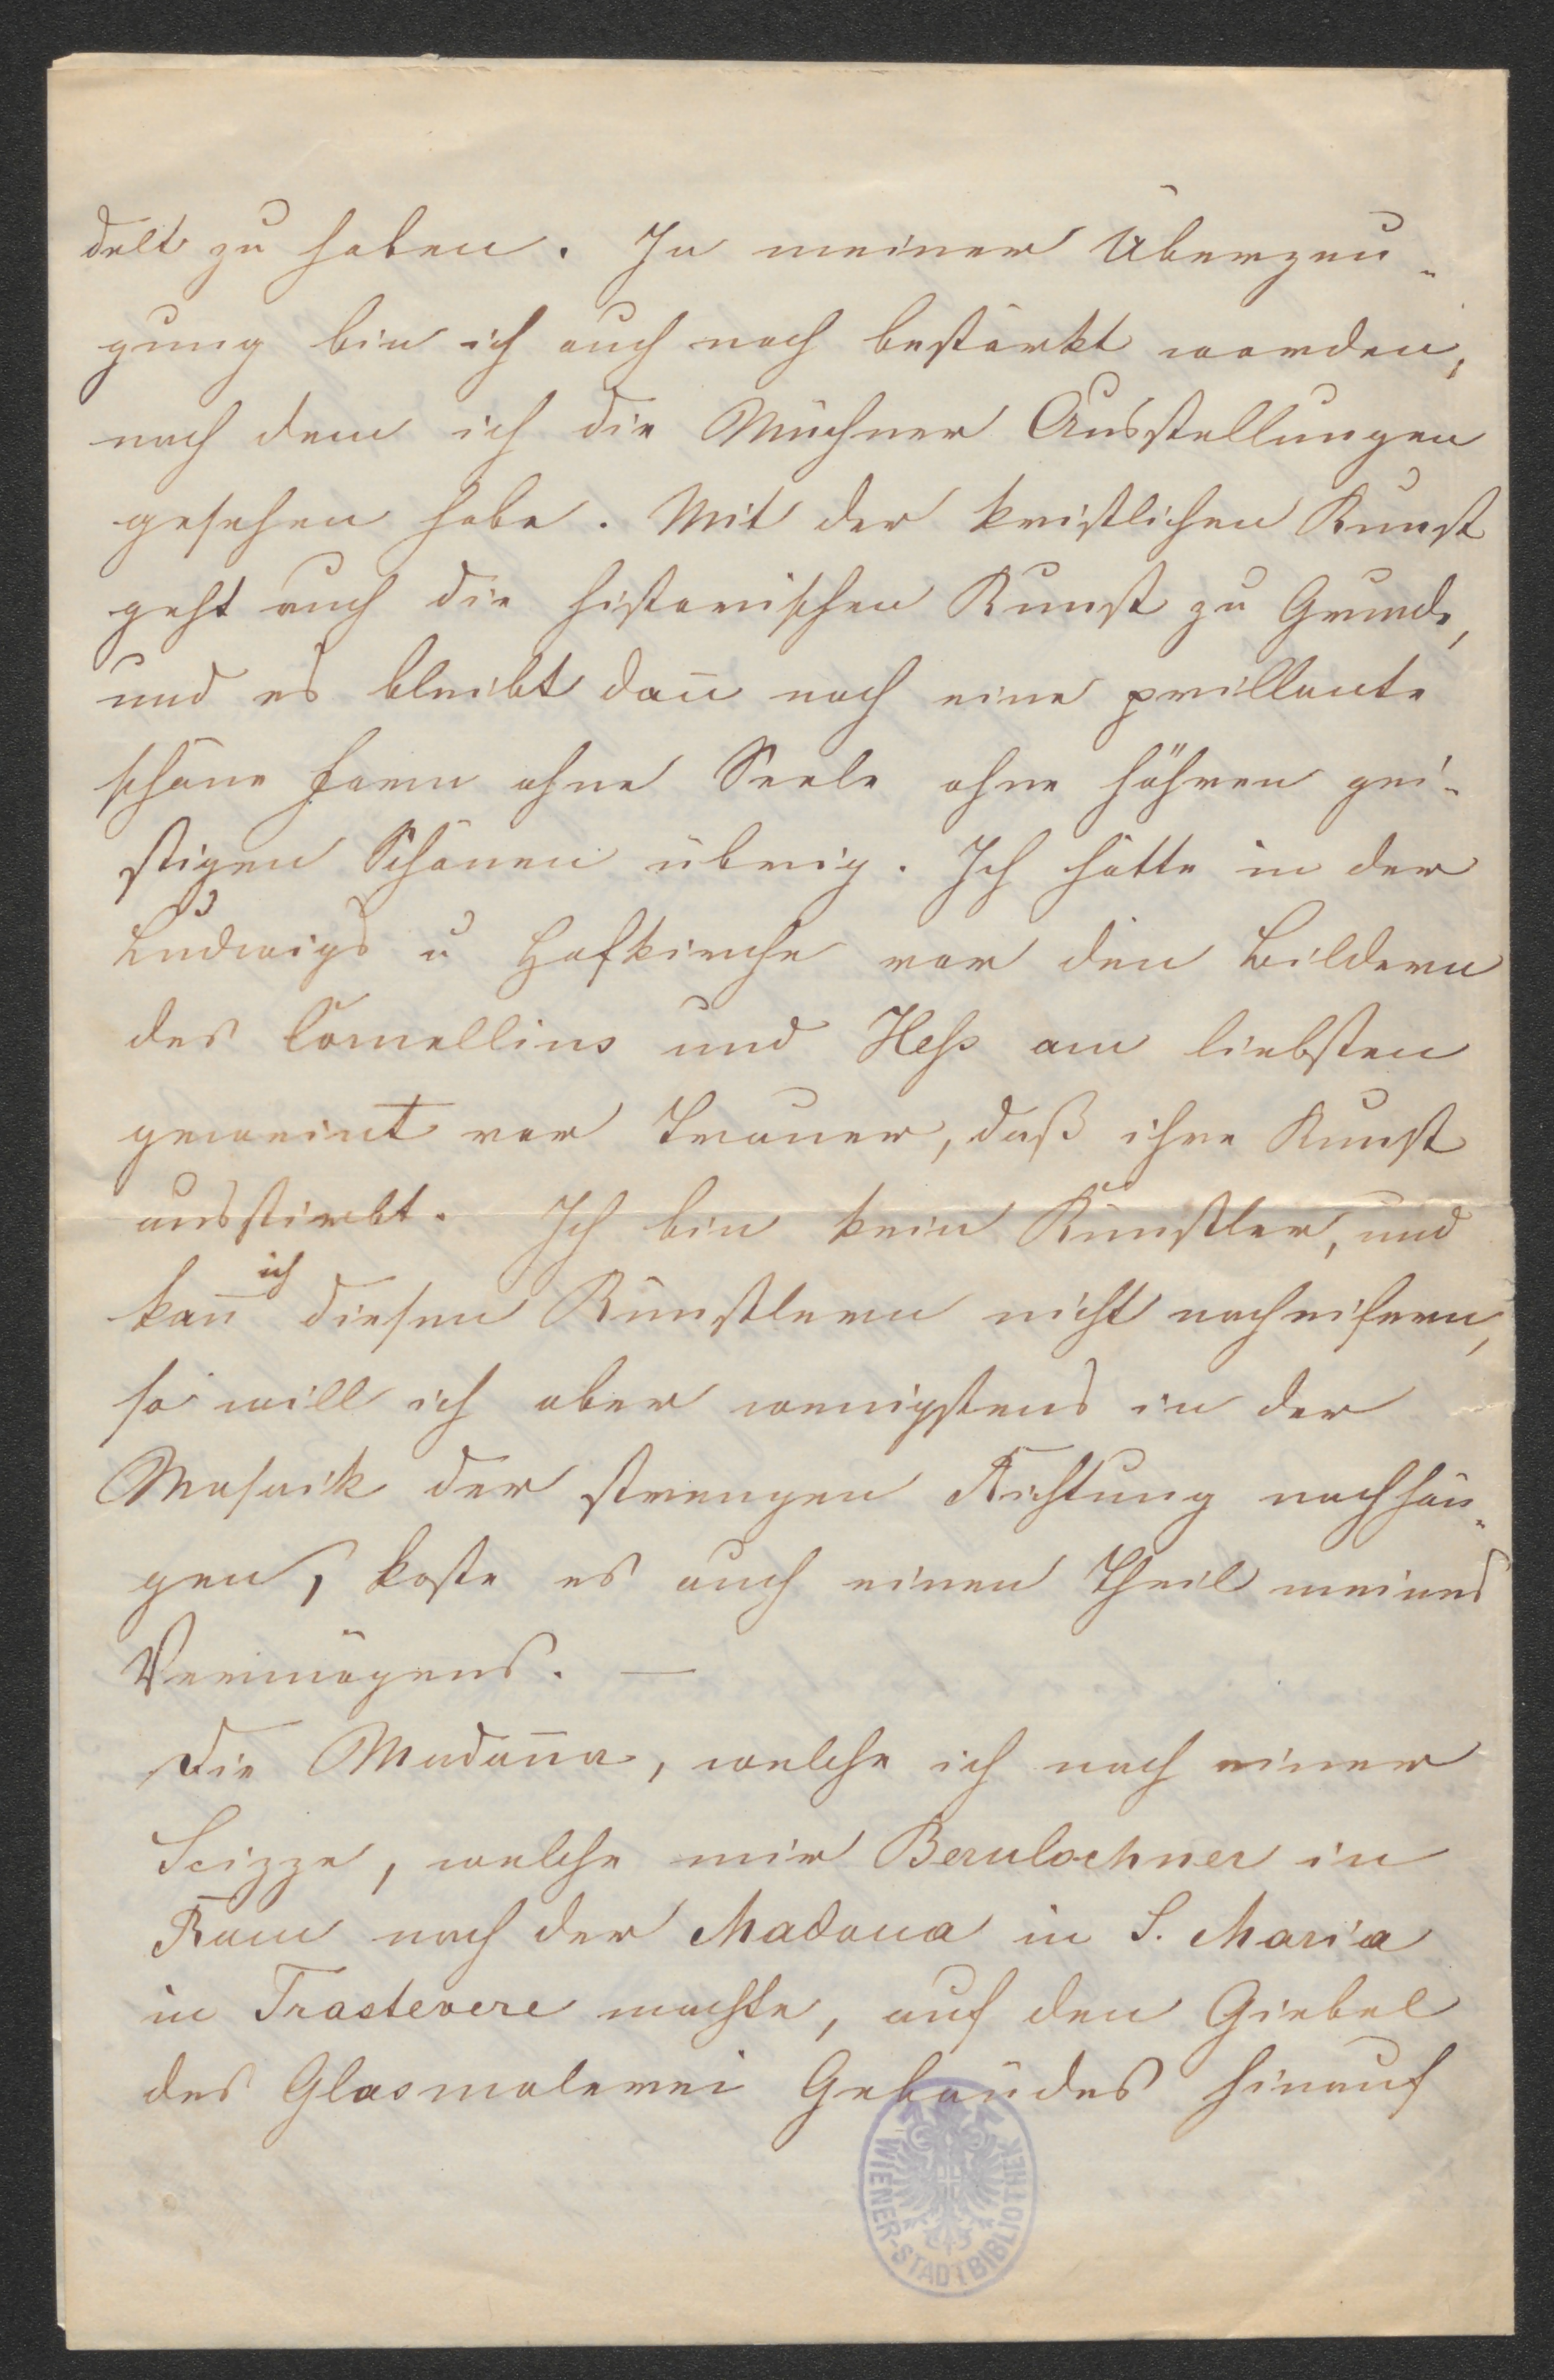 delt zu haben. In meiner Überzeu-
gung bin ich auch noch bestärkt worden,
nach dem ich die Müchner Ausstellungen
gesehen habe. Mit der kristlichen Kunst
geht auch die historischen Kunst zu Grunde,
und es bleibt dan̄ noch eine prillante
schöne Form ohne Seele ohne höhren gei-
stigen Schönen übrig. Ich hätte in der
Ludwigs u Hofkirche vor den Bildern
des Cornellius und Heß am liebsten
geweint vor Trauer, daß ihre Kunst
ausstirbt. Ich bin kein Künstler, und
kan̄ ich diesen Künstlern nicht nacheifern,
so will ich aber wenigstens in der
Mosaik der strengen Richtung nachhän-
gen, koste es auch einen Theil meines
Vermögens. —
Die Madon̄a, welche ich nach einer
Scizze, welche mir Bernlochner in
Rom nach der Madona in S. Maria
in Trastevere machte, auf den Giebel
des Glasmalerei Gebäudes hinauf
WIENER-STADTBIBLIOTHEK